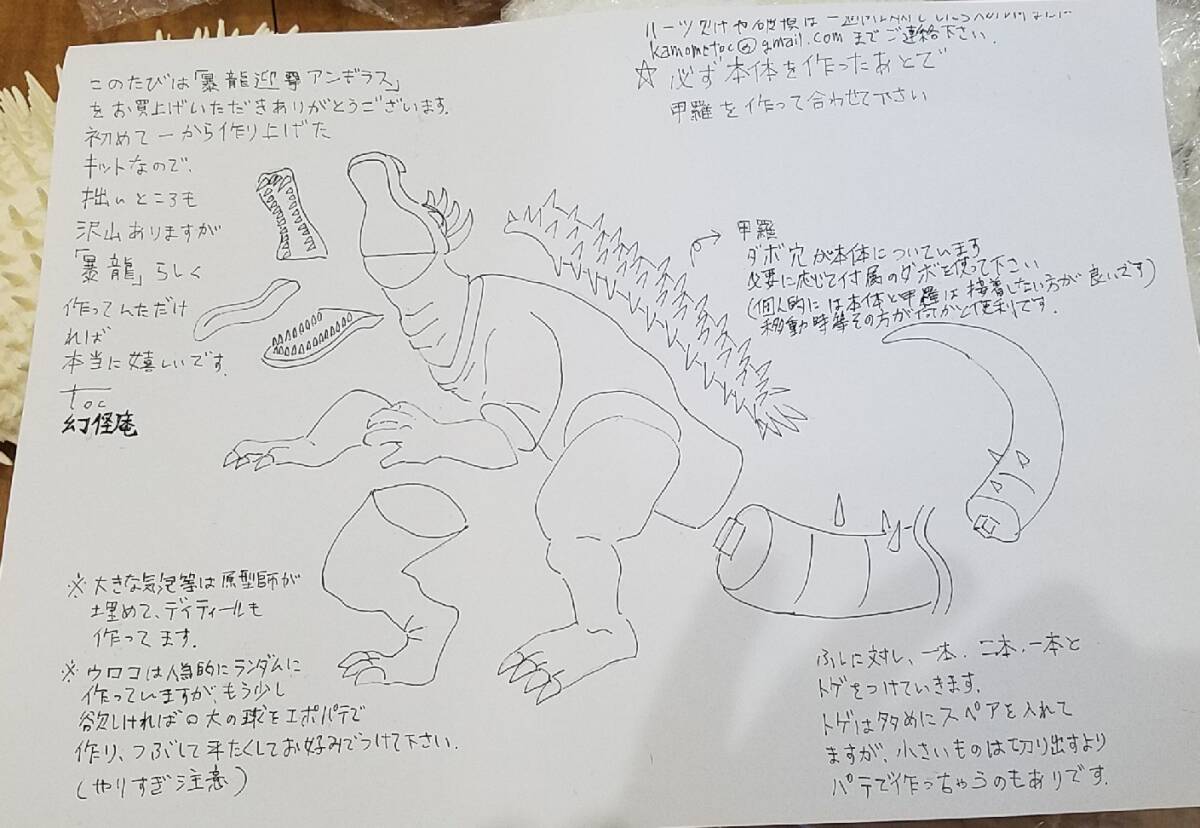 このたびは「暴龍迎撃アンギラス」
をお買上げいただきありがとうございます.
初めて一から作り上げた
キットなので、
拙いところも
沢山ありますが
「暴龍」らしく
作っていただけ
れば
本当に嬉しいです.
toc
幻怪庵
パーツ欠けや破損は一週間以内
kamometoc@gmail.com までご連絡下さい.
☆ 必ず本体を作ったあとで
甲羅を作って合わせて下さい
甲羅
ダボ穴が本体についています
必要に応じて付属のダボを使って下さい
(個人的には本体と甲羅は接着しない方が良いです)
移動時等その方が何かと便利です.
※ 大きな気泡等は原型師が
埋めて、ディティールも
作ってます.
※ ウロコは人為的にランダムに
作っていますが、もう少し
欲しければ口大の球をエポパテで
作り、つぶして平たくしてお好みでつけて下さい.
(やりすぎ注意)
ふしに対し、一本、二本、一本と
トゲをつけていきます.
トゲは多めにスペアを入れて
ますが、小さいものは切り出すより
パテで作っちゃうのもありです.